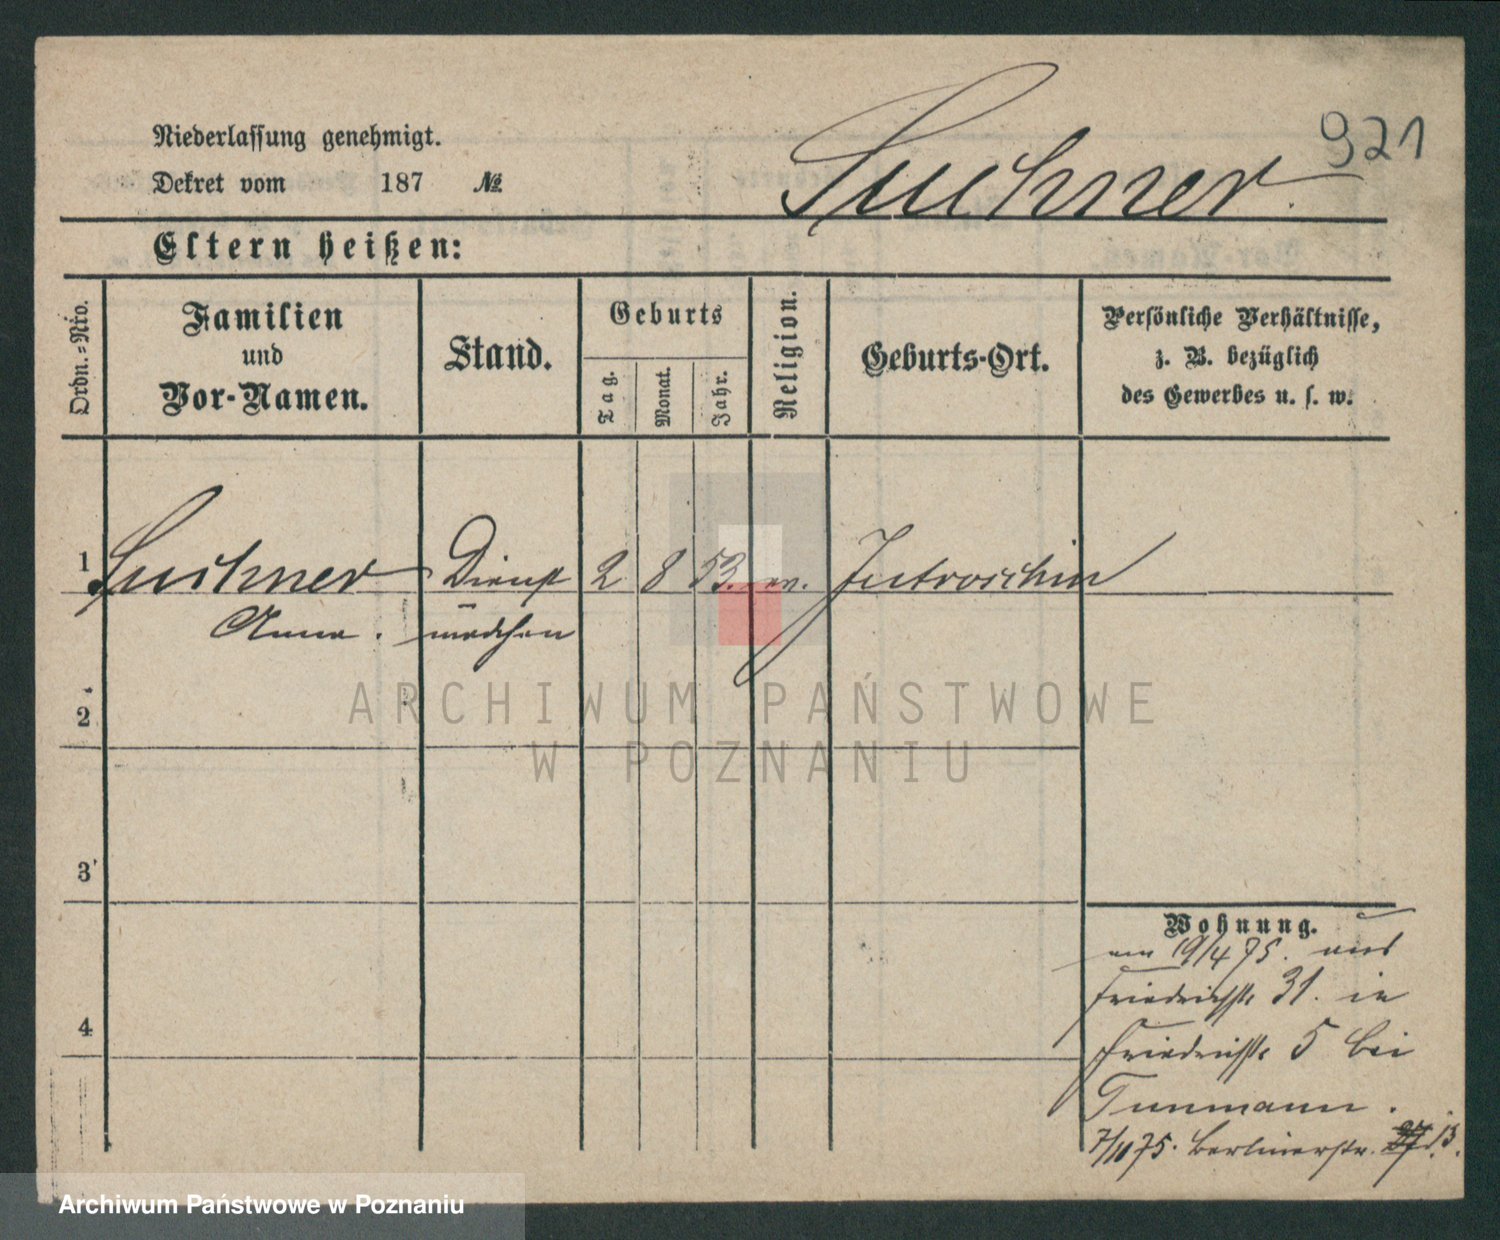 921
Niederlassung genehmigt.
Dekret vom 187 №
Luchner.
Eltern heißen:
Ordn.=Nro.
Familien
und
Vor-Namen.
Stand.
Geburts
Tag.
Monat.
Jahr.
Religion.
Geburts-Ort.
Persönliche Verhältnisse,
z. B. bezüglich
des Gewerbes u. s. w.
1 Luchner Dienst 2 8 53. ev. Jutroschin
Anna. mädchen
2
3
4
Wohnung.
am 19/4 75. aus
Friedrichstr 31. in
Friedrichstr 5 bei
7/11 75. Berlinerstr. 13.
ARCHIWUM PAŃSTWOWE
W POZNANIU
Archiwum Państwowe w Poznaniu